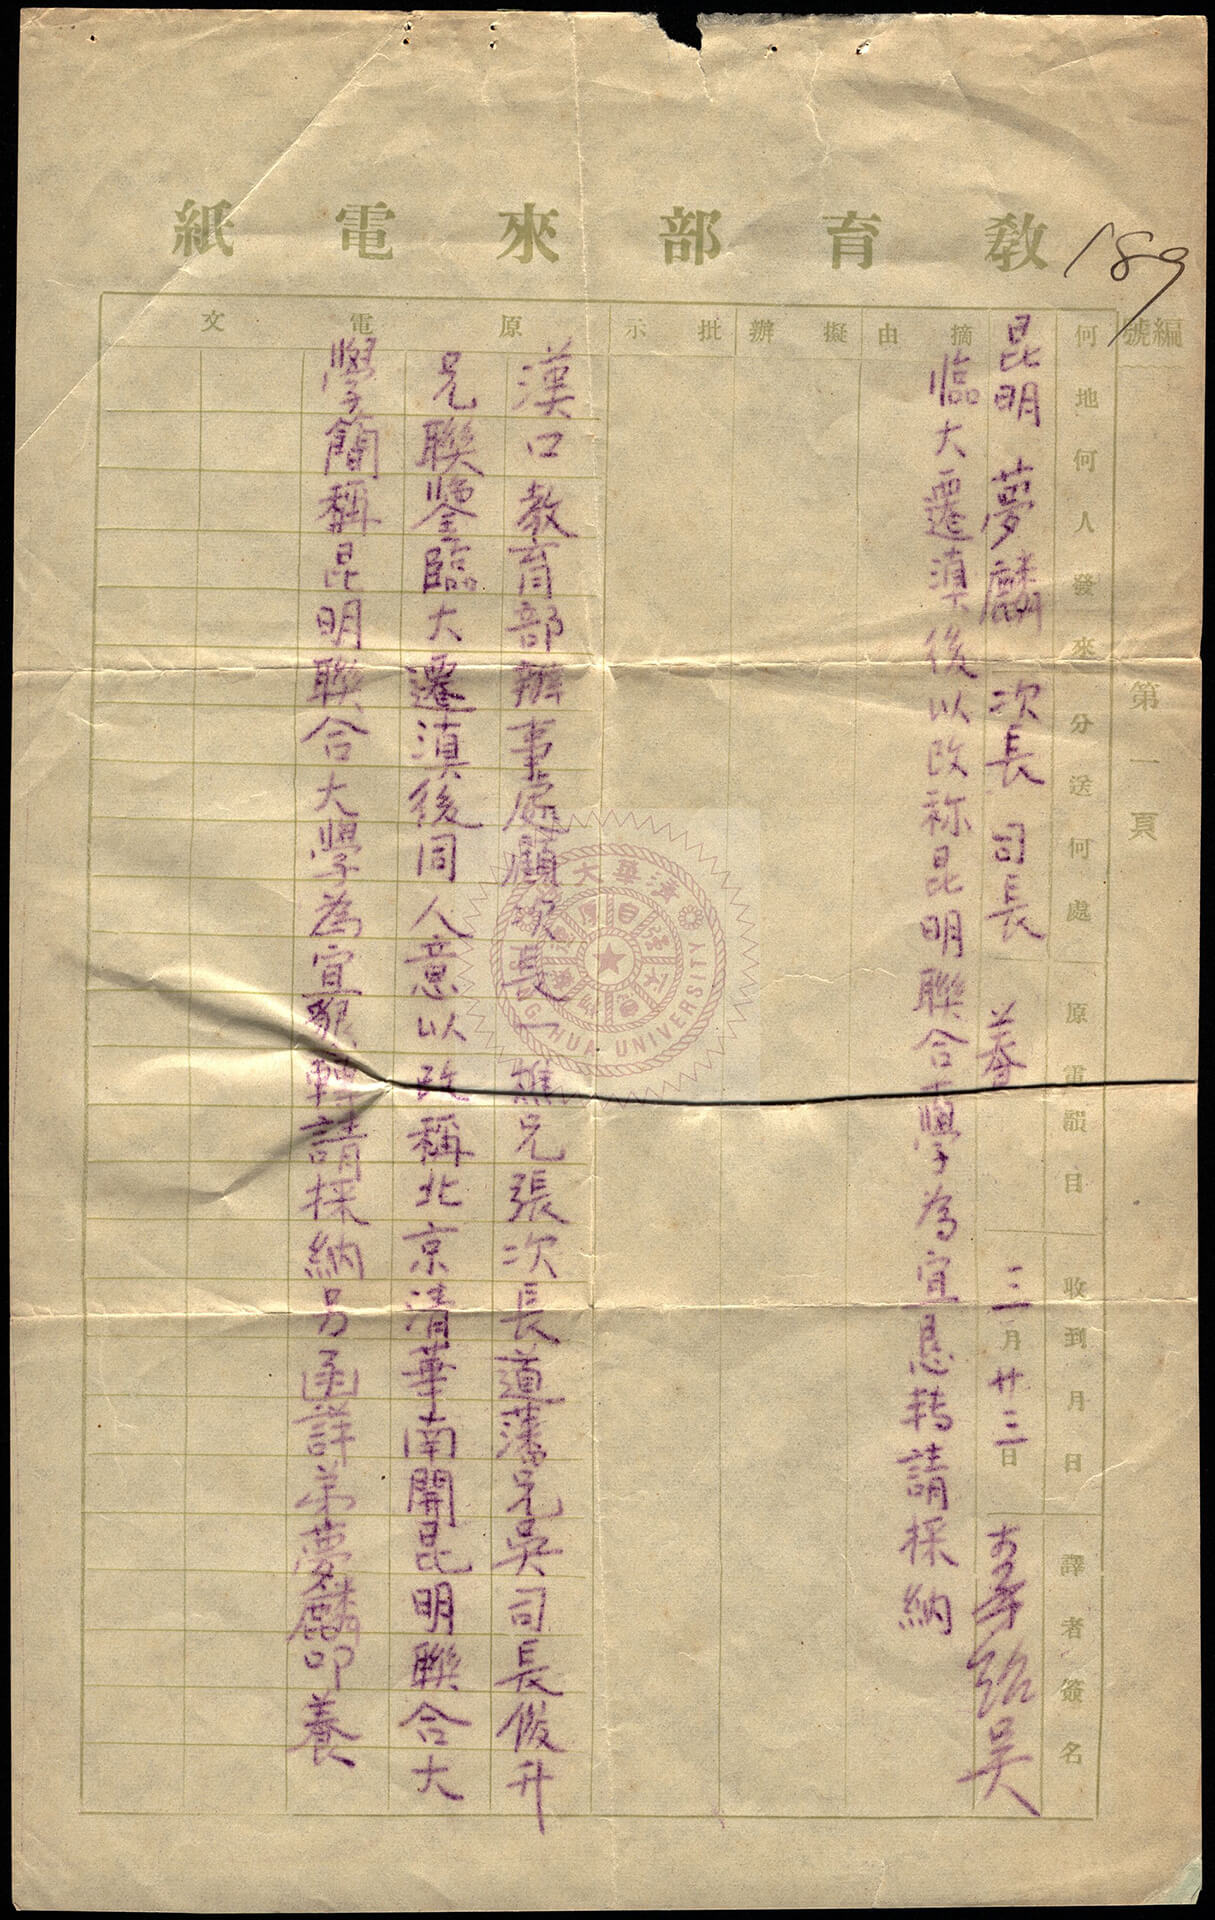 教育部來電紙
189
編號
第一頁
何地何人發來 分送何處 原電韻目 收到月日 譯者簽名
昆明 夢麟 次長 司長 養 三月廿三日
摘由
臨大遷滇後以改称昆明聯合大學為宜懇轉請採納
擬辦
批示
原電文
漢口教育部辦事處顧次長一樵兄張次長道藩兄吳司長俊升
兄聯鑒臨大遷滇後同人意以改稱北京清華南開昆明聯合大
學簡稱昆明聯合大學為宜懇轉請採納另函詳弟夢麟叩養
清華大學
自強不息
厚德載物
TSING HUA UNIVERSITY